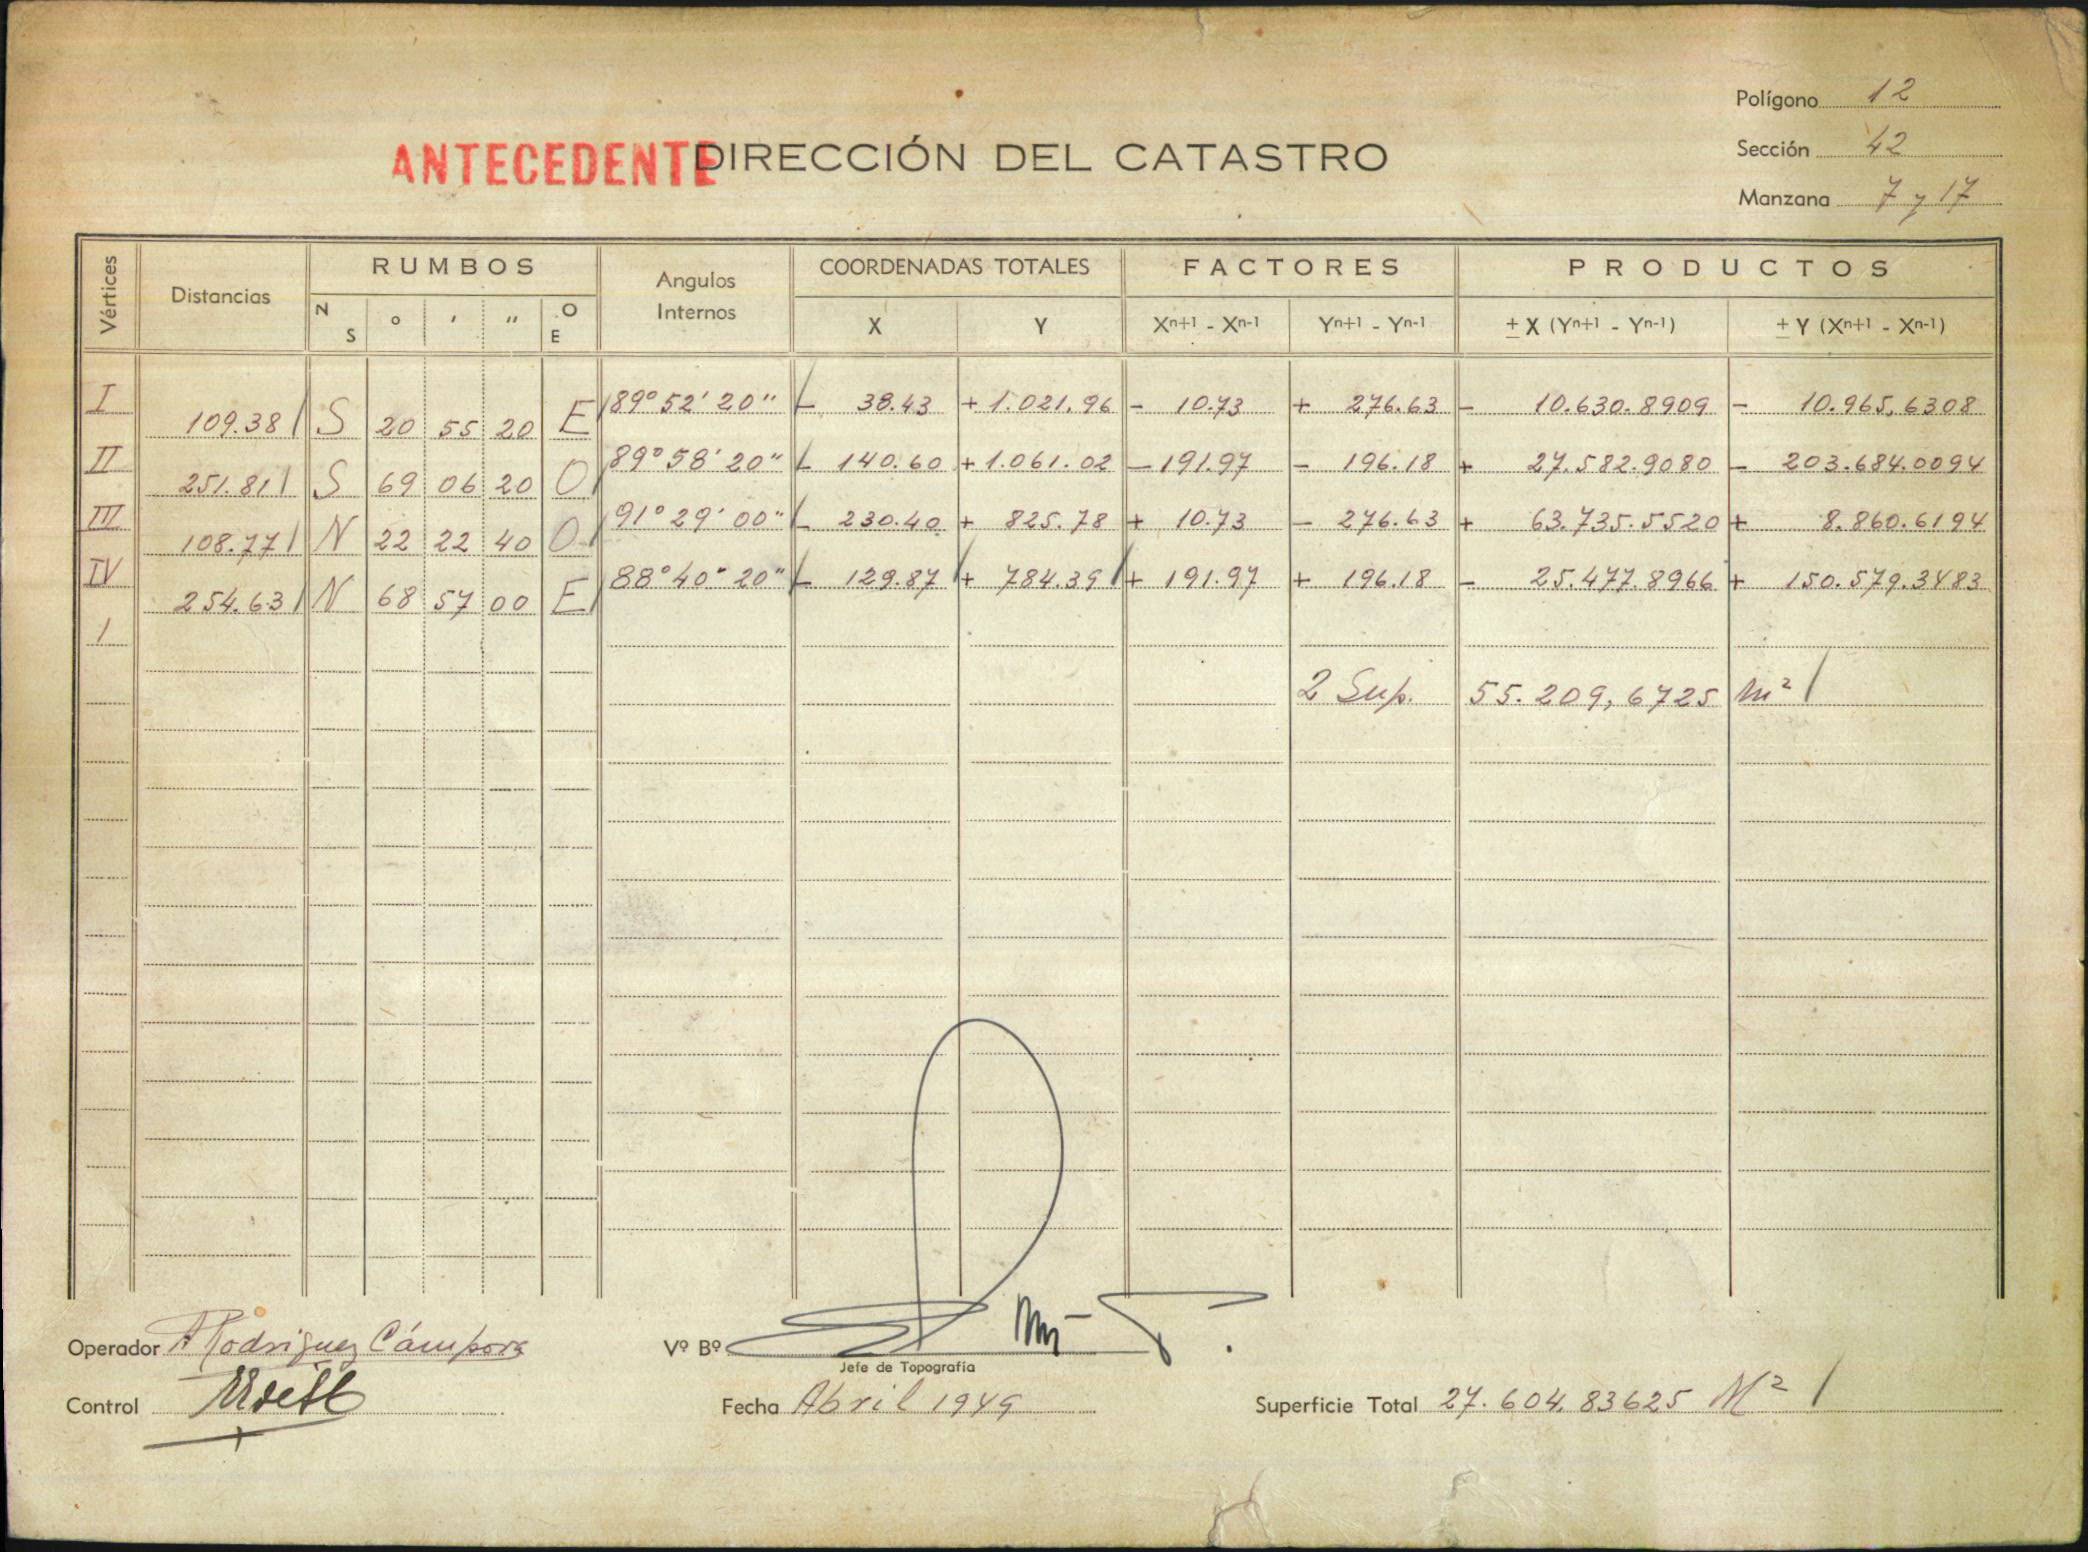 Polígono 12
ANTECEDENTE DIRECCIÓN DEL CATASTRO
Sección 42
Manzana 7 y 17
Vértices Distancias RUMBOS Angulos Internos COORDENADAS TOTALES FACTORES PRODUCTOS
N S ° ' " O E X Y Xn+1 - Xn-1 Yn+1 - Yn-1 ± X (Yn+1 - Yn-1) ± Y (Xn+1 - Xn-1)
I 89° 52' 20" - 38.43 + 1.021.96 - 10.73 + 276.63 - 10.630.8909 - 10.965.6308
109.38 S 20 55 20 E
II 89° 58' 20" - 140.60 + 1.061.02 - 191.97 - 196.18 + 27.582.9080 - 203.684.0094
251.81 S 69 06 20 O
III 91° 29' 00" - 230.40 + 825.78 + 10.73 - 276.63 + 63.735.5520 + 8.860.6194
108.77 N 22 22 40 O
IV 88° 40" 20" - 129.87 + 784.39 + 191.97 + 196.18 - 25.477.8966 + 150.579.3483
254.63 N 68 57 00 E
I
2 Sup. 55.209,6725 m²
Operador A Rodriguez Cámpora
Vº Bº
Jefe de Topografía
Control
Fecha Abril 1949
Superficie Total 27.604.83625 M²